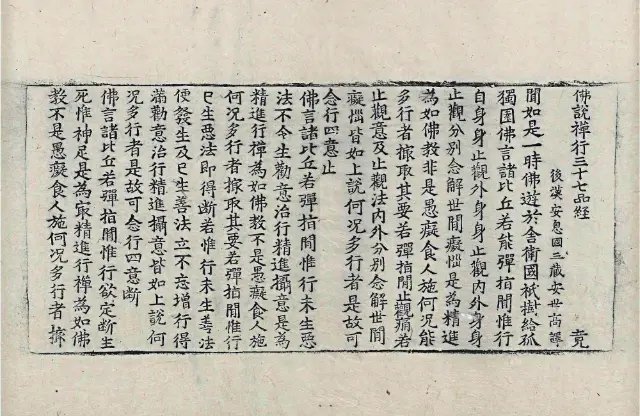 佛說禪行三十七品経 竟
後漢安息國三藏安世高譯
聞如是一時佛遊於舍衛國祇樹給孤
獨園佛言諸比丘若能彈指間惟行
自身身止觀外身身止觀內外身身
止觀分別念解世間癡惱是為精進
為如佛教非是愚癡食人施何況能
多行者撡取其要若彈指間止觀痛若
止觀意及止觀法內外分別念解世間
癡惱皆如上說何況多行者是故可
念行四意止
佛言諸比丘若彈指間惟行未生惡
法不令生勸意治行精進攝意是為
精進行禪為如佛教不是愚癡食人施
何況多行者撡取其要若彈指間惟行
已生惡法即得斷若惟行未生善法
便發生及已生善法立不忘增行得
滿勸意治行精進攝意皆如上說何
況多行者是故可念行四意斷
佛言諸比丘若彈指間惟行欲定斷生
死惟神足是為㝡精進行禪為如佛
教不是愚癡食人施何況多行者撡